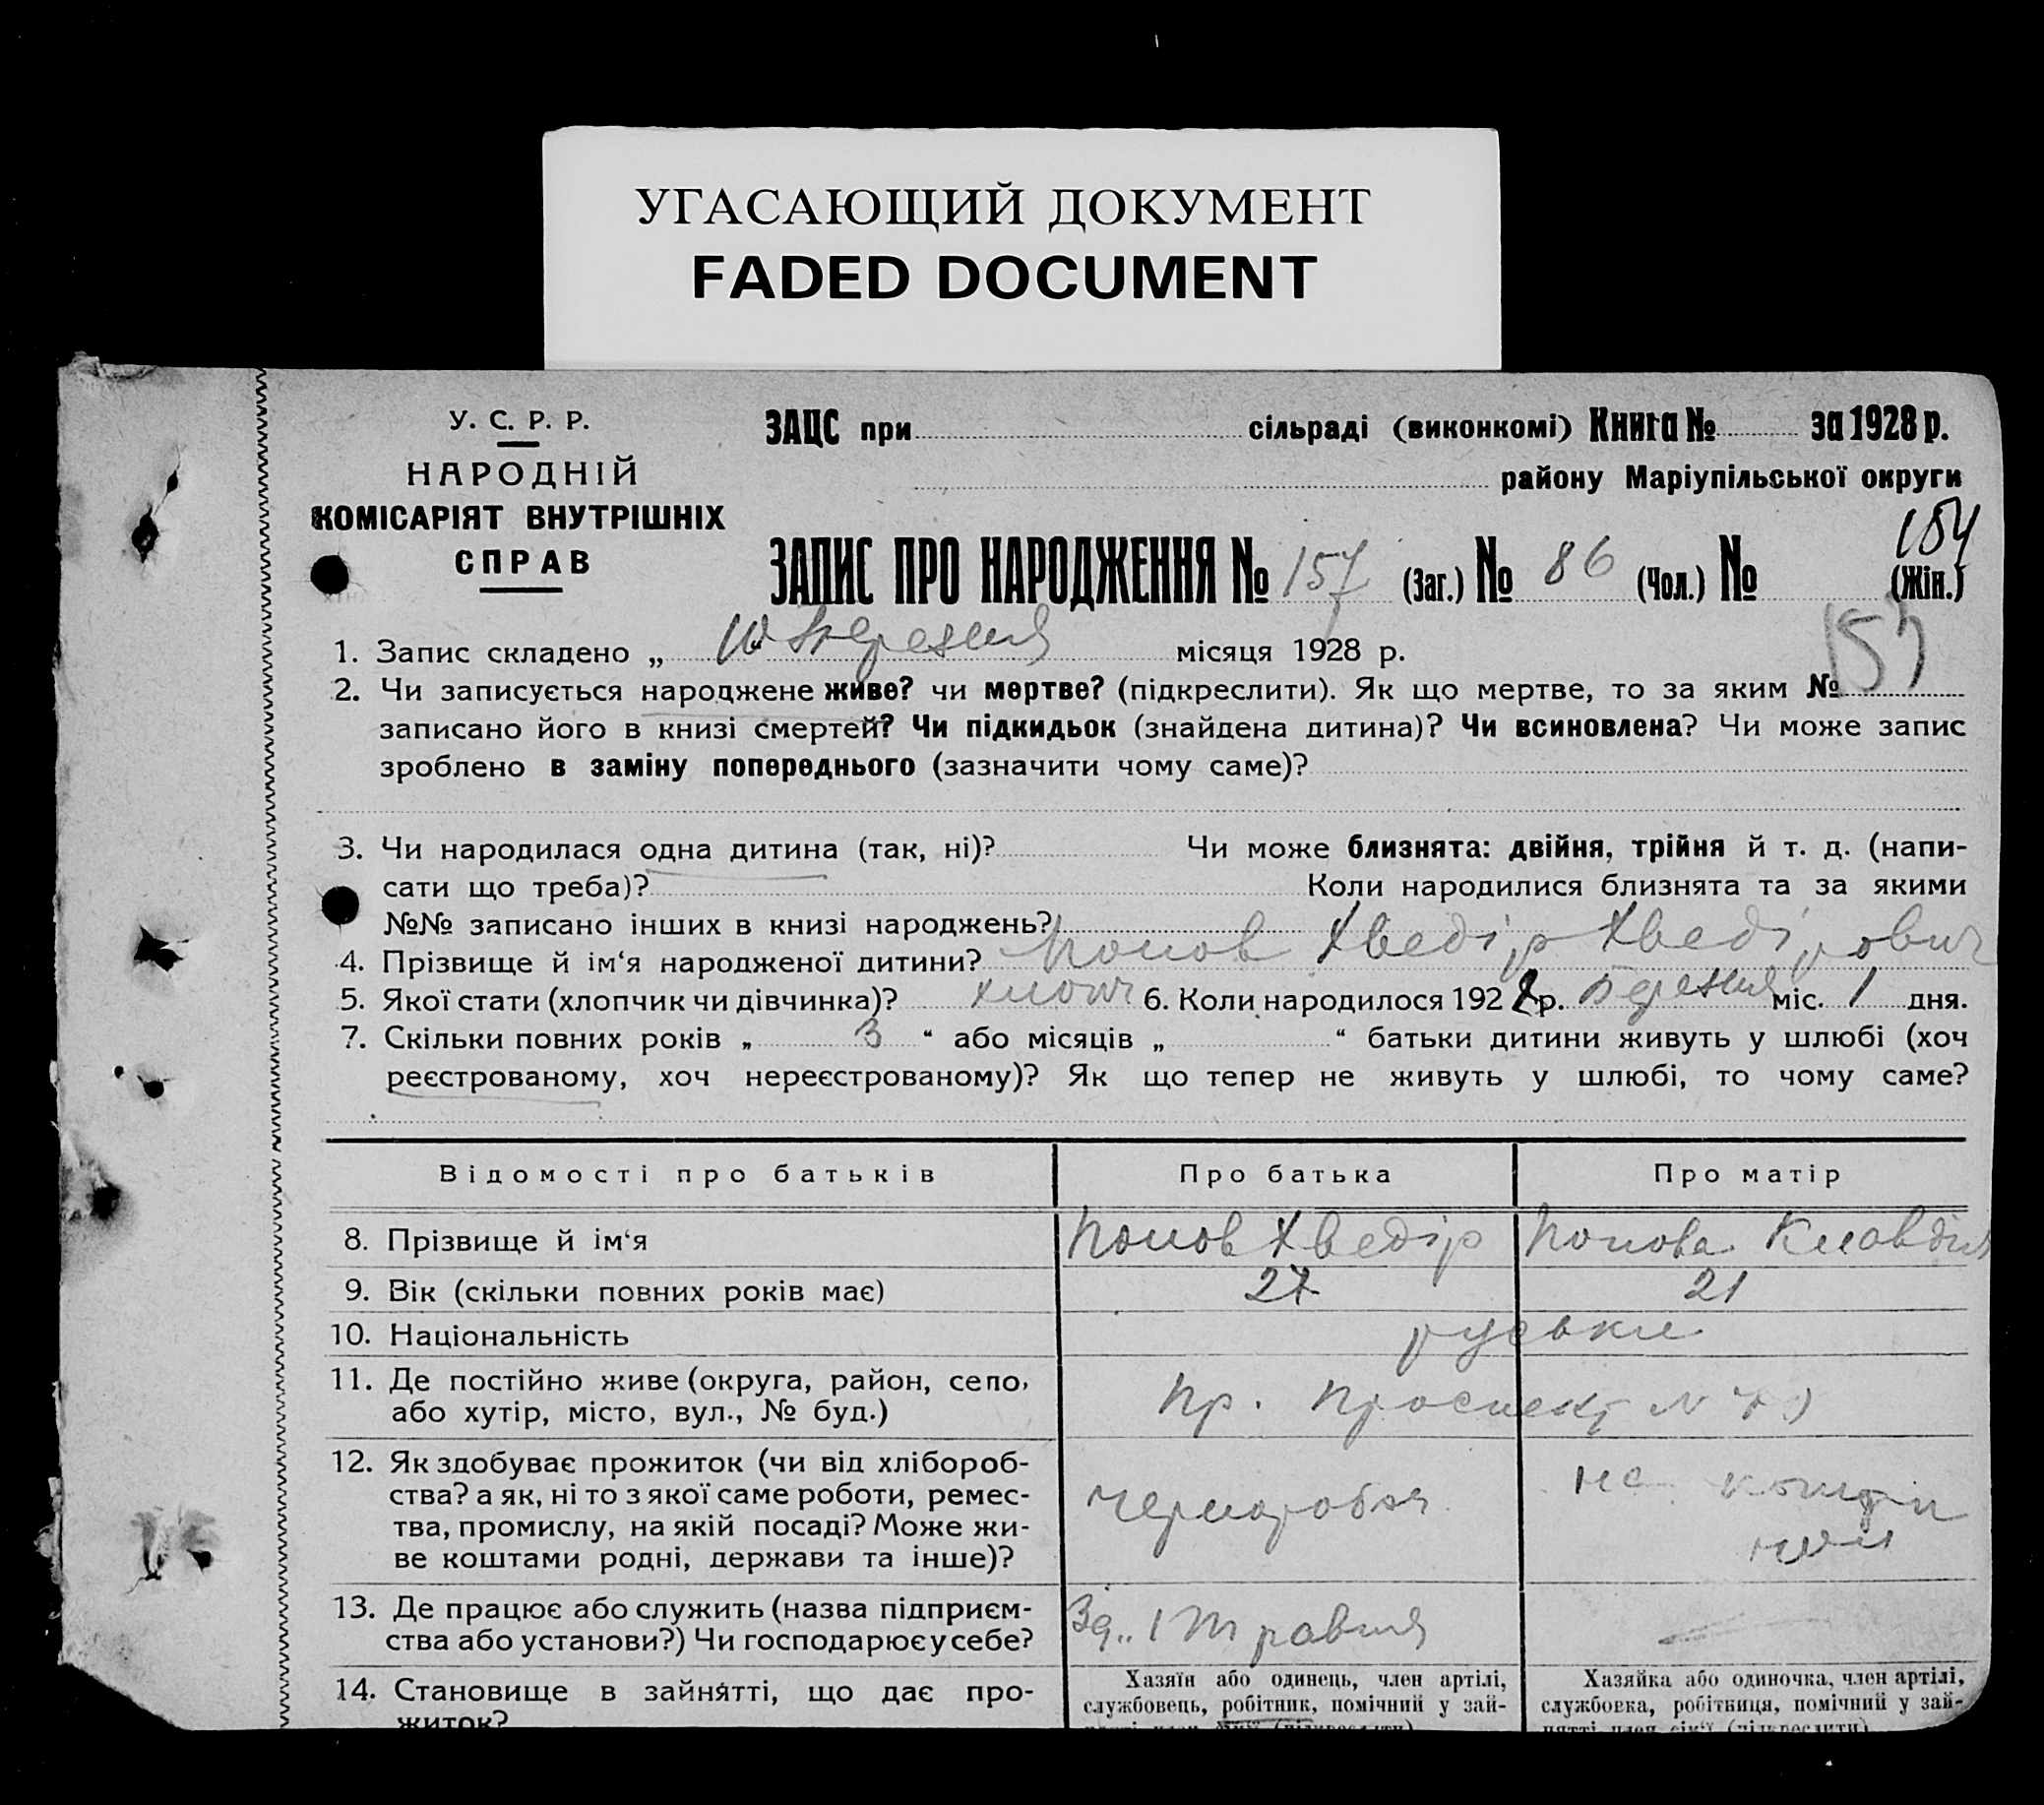 УГАСАЮЩИЙ ДОКУМЕНТ
FADED DOCUMENT
У. С. Р. Р.
НАРОДНІЙ
КОМІСАРІЯТ ВНУТРІШНІХ
СПРАВ
ЗАЦС при сільраді (виконкомі) Книга № за 1928 р.
району Маріупільської округи
154
ЗАПИС ПРО НАРОДЖЕННЯ № 157 (Заг.) № 86 (Чол.) № (Жін.)
157
1. Запис складено „ 10 березня місяця 1928 р.
2. Чи записується народжене живе? чи мертве? (підкреслити). Як що мертве, то за яким №
записано його в книзі смертей? Чи підкидьок (знайдена дитина)? Чи всиновлена? Чи може запис
зроблено в заміну попереднього (зазначити чому саме)?
3. Чи народилася одна дитина (так, ні)? Чи може близнята: двійня, трійня й т. д. (напи-
сати що треба)? Коли народилися близнята та за якими
№№ записано інших в книзі народжень?
4. Прізвище й ім‘я народженої дитини? Попов Хведір Хведірович
5. Якої стати (хлопчик чи дівчинка)? хлопч 6. Коли народилося 1928 р. Березня міс. 1 дня.
7. Скільки повних років „ 3 “ або місяців „ “ батьки дитини живуть у шлюбі (хоч
реєстрованому, хоч нереєстрованому)? Як що тепер не живуть у шлюбі, то чому саме?
Відомості про батьків Про батька Про матір
8. Прізвище й ім‘я Попов Хведір Попова Клавдія
9. Вік (скільки повних років має) 27 21
10. Національність руські
11. Де постійно живе (округа, район, село,
або хутір, місто, вул., № буд.) Пр. Проспект №
12. Як здобуває прожиток (чи від хлібороб-
ства? а як, ні то з якої саме роботи, ремес-
тва, промислу, на якій посаді? Може жи-
ве коштами родні, держави та інше)? чорнороб на кошти
13. Де працює або служить (назва підприєм-
ства або установи?) Чи господарює у себе? Зд. 1 Травня
14. Становище в зайнятті, що дає про-
житок?
Хазяїн або одинець, член артілі,
службовець, робітник, помічний у зай-
нятті член сім‘ї (підкреслити)
Хазяйка або одиночка, член артілі,
службовка, робітниця, помічний у зай-
нятті член сім‘ї (підкреслити)